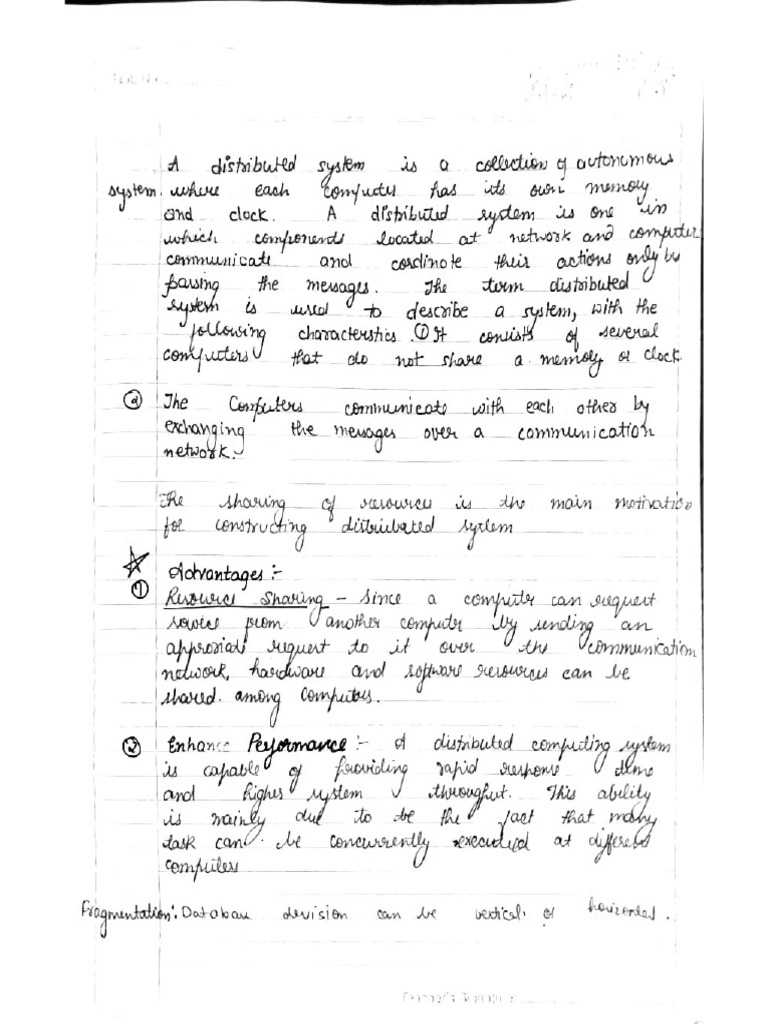 A distributed system is a collection of autonomous
system. where each computer has its own memory
and clock. A distributed system is one in
which components located at network and computer
communicate and cordinate their actions only by
passing the messages. The term distributed
system is used to describe a system, with the
following characterstics. ① It consists of several
computers that do not share a memory or clock
② The Computers communicate with each other by
exchanging the messages over a communication
network.
The sharing of resources is the main motivation
for constructing distriubated system
Advantages :-
① Resources Sharing - Since a computer can request
from another computer by sending an
request to it over the communication
network, hardware and software resources can be
shared. among computers.
② Enhance Performance :- A distributed computing system
is capable of providing rapid response time
and higher system throughput. This ability
is mainly due to be the fact that many
task can be concurrently executed at different
computer
Fragmentation :. Database devision can be vertical. or horizontal.